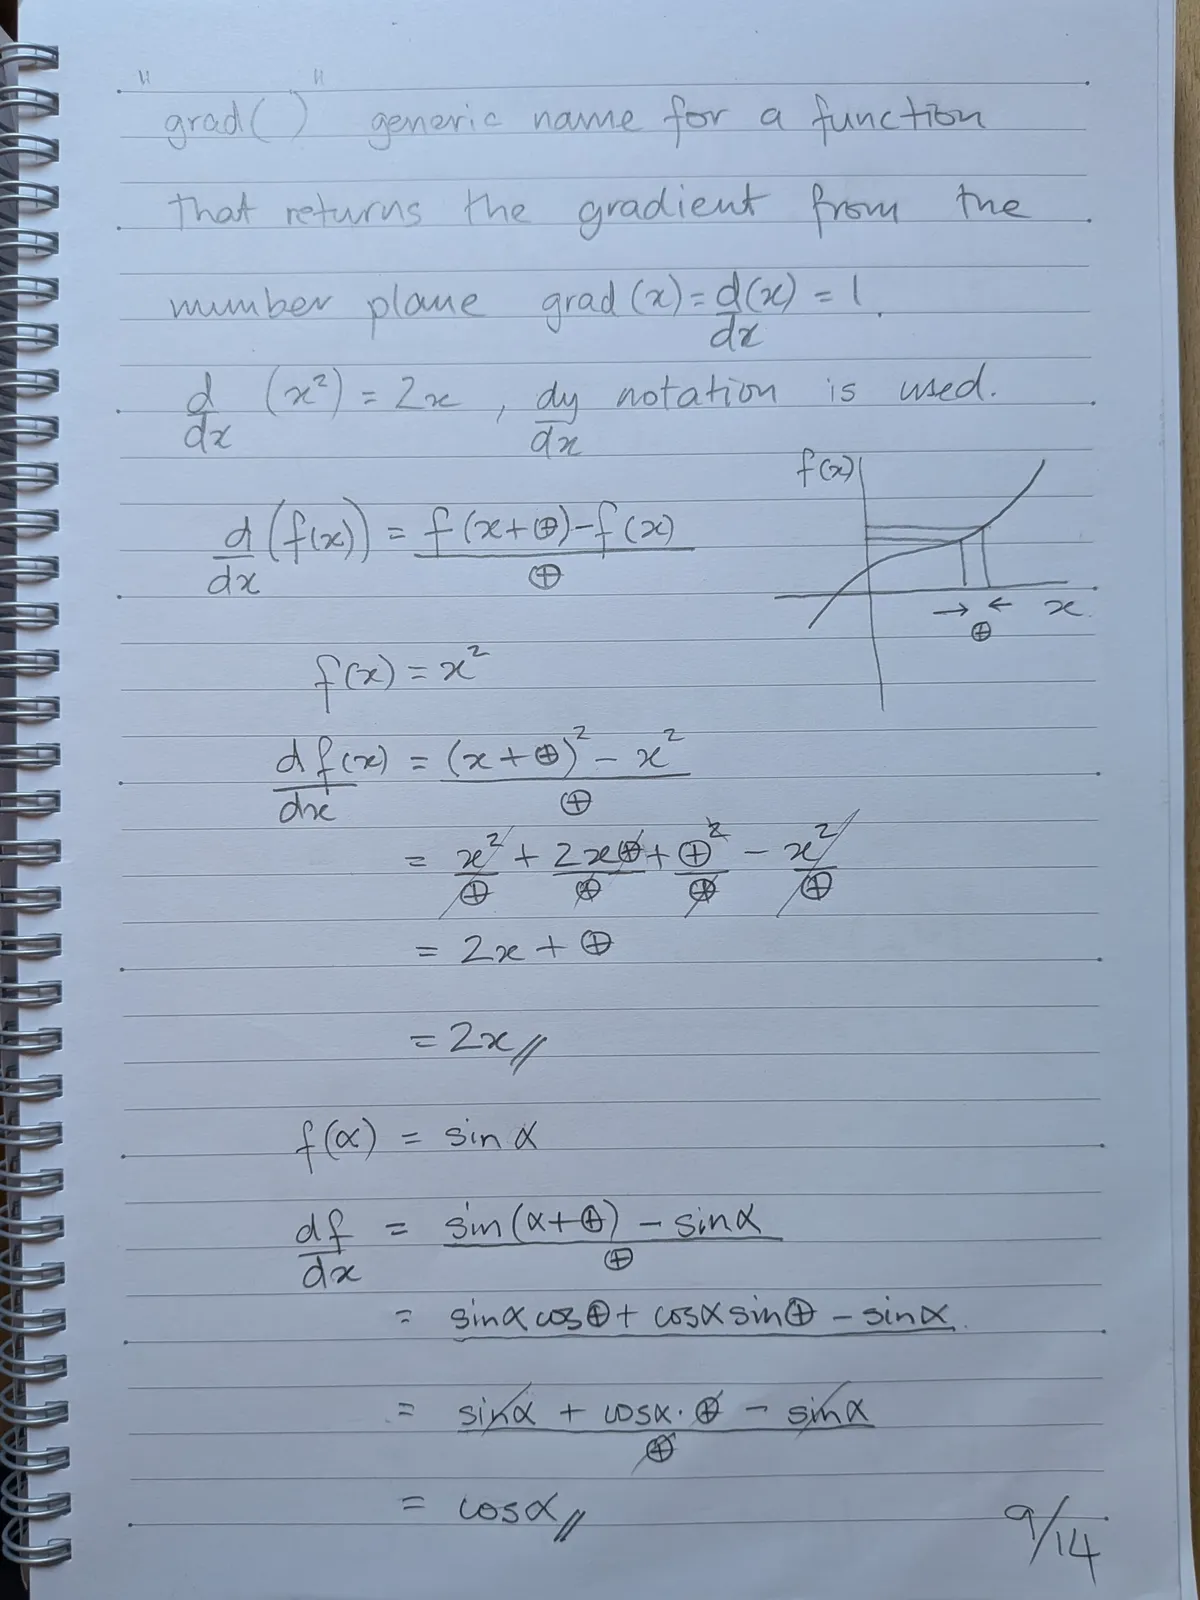 "grad()" generic name for a function
that returns the gradient from the
number plane grad(x) = d(x)/dx = 1.
d/dx (x²) = 2x, dy/dx notation is used.
f(x)
d/dx (f(x)) = (f(x+⊕) - f(x))/⊕
→ ← x
⊕
f(x) = x²
df(x)/dx = ((x+⊕)² - x²)/⊕
= x²/⊕ + 2x⊕/⊕ + ⊕²/⊕ - x²/⊕
= 2x + ⊕
= 2x//
f(α) = sin α
df/dx = (sin(α+⊕) - sinα)/⊕
= sinα cos⊕ + cosα sin⊕ - sinα
= (sinα + cosα·⊕ - sinα)/⊕
= cosα//
9/14